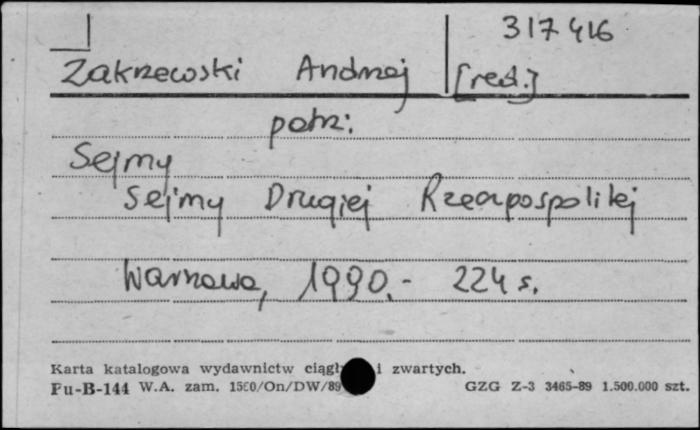 317416
Zakrzewski Andrzej [red.]
patrz:
Sejmy
Sejmy Drugiej Rzeczpospolitej
Warszawa, 1990.- 224 s.
Karta katalogowa wydawnictw i zwartych.
Pu-B-144 W.A. zam. 1500/On/DW/89 GZG Z-3 3465-89 1.500.000 szt.